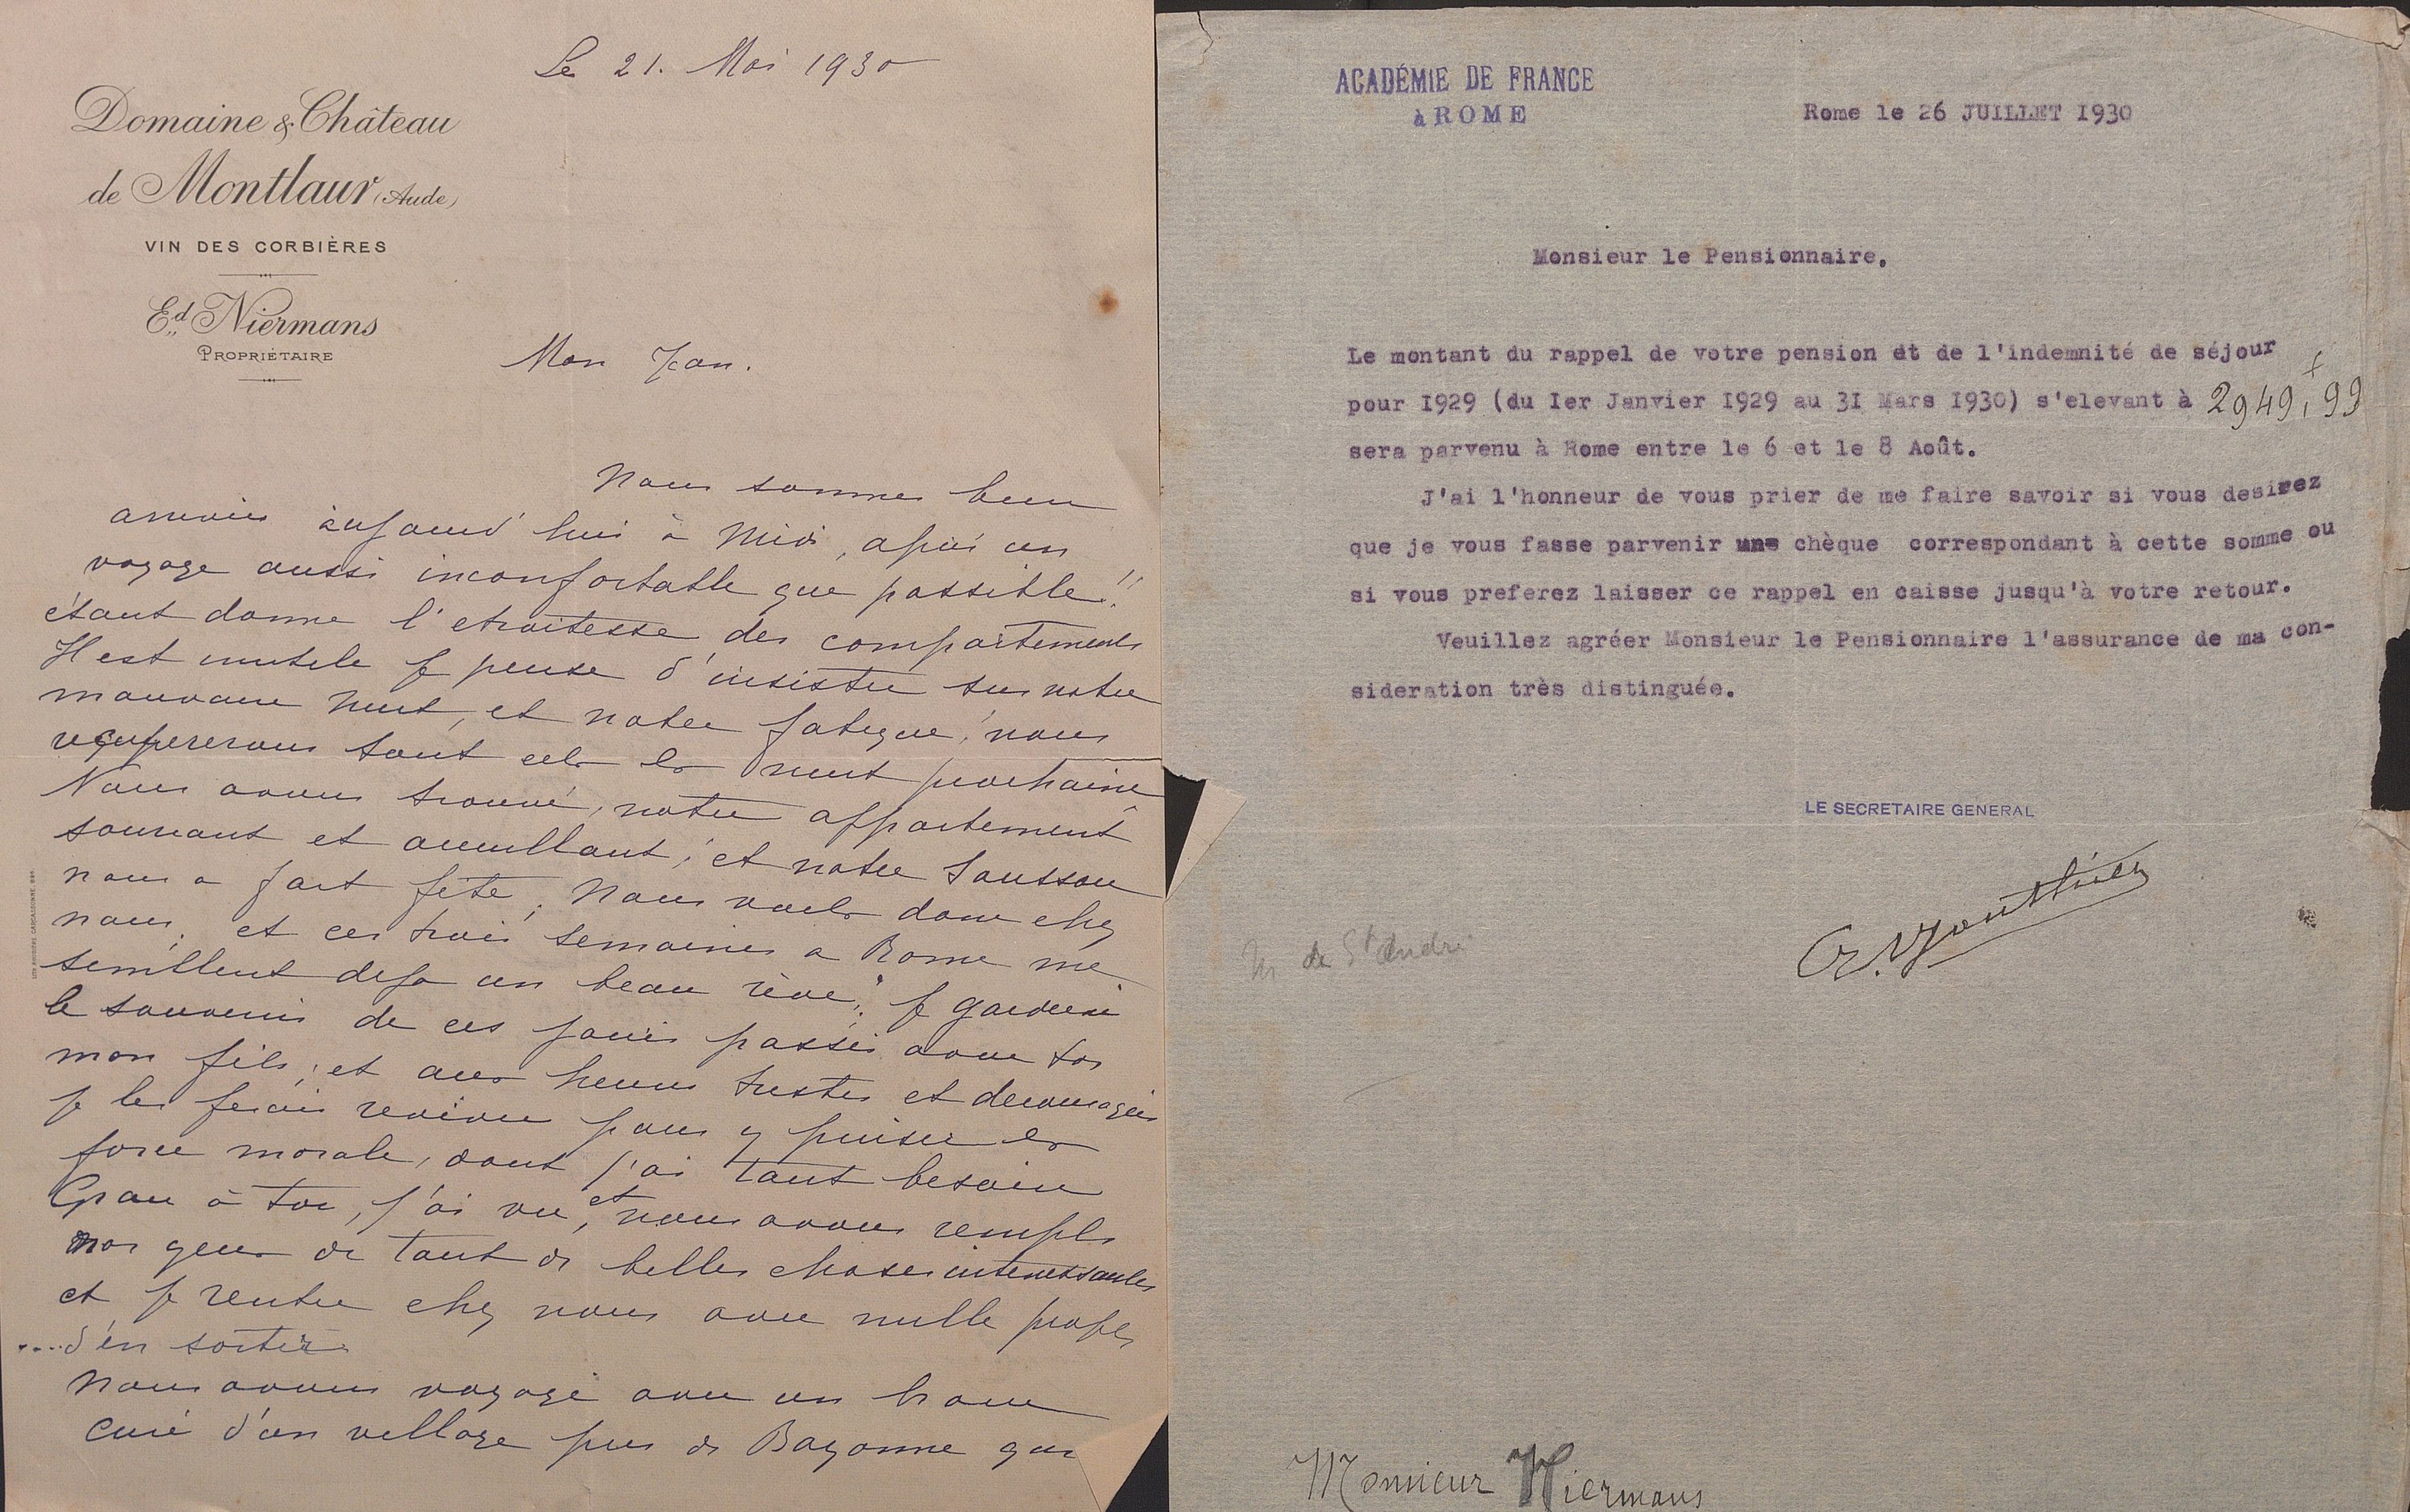 Le 21. Mai 1930
Domaine & Château
de Montlaur (Aude)
VIN DES CORBIÈRES
Ed Niermans
PROPRIÉTAIRE
Mon Jean.
Nous sommes bien
arrivés aujourd'hui à Midi, après un
voyage aussi inconfortable que possible!!
étant donne l'etroitesse des compartiments
Il est inutile je pense d'insister sur notre
mauvaise nuit, et notre fatigue, nous
recupererons tout cela la nuit prochaine
Nous avons trouvé, notre appartement
souriant et accueillant, et notre
nous a fait fête. Nous voila donc chez
nous, et ces trois semaines a Rome me
semblent deja un beau rêve, je garderai
le souvenir de ces jours passés avec toi
mon fils, et aux heures tristes et decouragées
je les ferai revivre pour y puiser la
force morale, dont j'ai tant besoin
Grace à toi, j'ai vu, et nous avons rempli
nos yeux de tant de belles choses interessantes
et je rentre chez nous avec mille projets
....d'en sortir
Nous avons voyagé avec un brave
curé d'un village pres de Bayonne qui
ACADÉMIE DE FRANCE
à ROME
Rome le 26 JUILLET 1930
Monsieur le Pensionnaire.
Le montant du rappel de votre pension et de l'indemnité de séjour
pour 1929 (du Ier Janvier 1929 au 31 Mars 1930) s'elevant à 2949f,99
sera parvenu à Rome entre le 6 et le 8 Août.
J'ai l'honneur de vous prier de me faire savoir si vous desirez
que je vous fasse parvenir une chèque correspondant à cette somme ou
si vous preferez laisser ce rappel en caisse jusqu'à votre retour.
Veuillez agréer Monsieur le Pensionnaire l'assurance de ma con-
sideration très distinguée.
LE SECRETAIRE GENERAL
M de St André
Monsieur Niermans